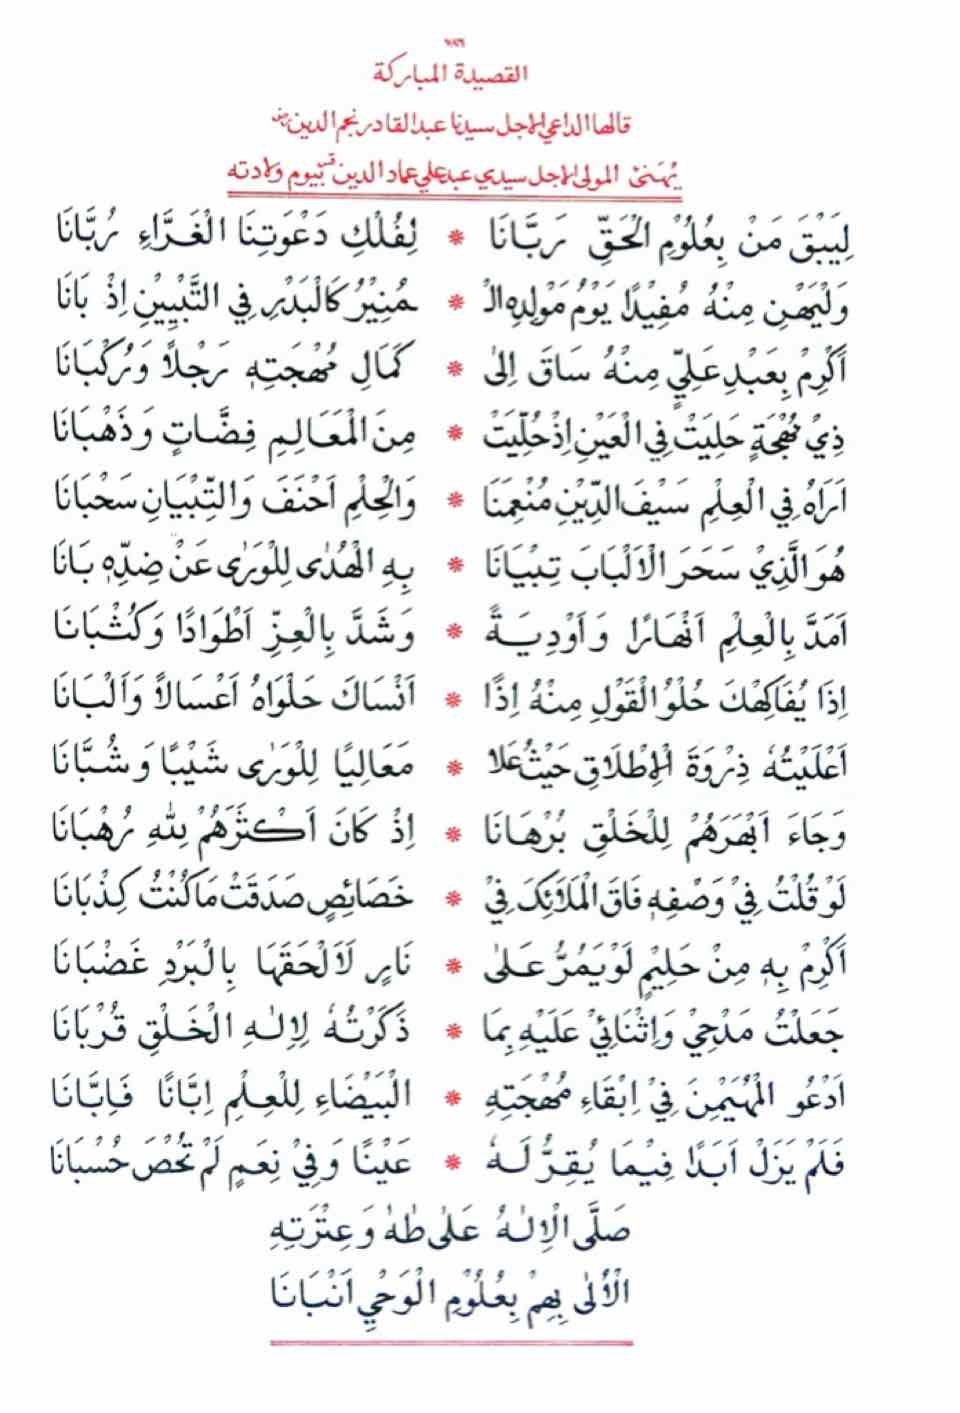 ٧٨٦
القصيدة المباركة
قالها الداعي الاجل سيدنا عبد القادر نجم الدين رض
يُهنئ المولى الاجل سيدي عبد علي عماد الدين قس بيوم ولادته
لِيَبْقَ مَنْ بِعُلُوْمِ الْحَقِّ رَبَّانَا * لِفُلْكِ دَعْوَتِنَا الْغَرَّاءِ رُبَّانَا
وَلْيَهْنِ مِنْهُ مُفِيْدًا يَوْمُ مَوْلِدِهِ الْـ * ـمُنِيْرُ كَالْبَدْرِ فِي التَّبْيِيْنِ اِذْ بَانَا
اَكْرِمْ بِعَبْدِ عَلِيٍّ مِنْهُ سَاقَ اِلٰى * كَمَالِ مُهْجَتِهٖ رَجْلًا وَرُكْبَانَا
ذِيْ مُهْجَةٍ حَلِيَتْ فِي الْعَيْنِ اِذْ حُلِّيَتْ * مِنَ الْمَعَالِمِ فِضَّاتٍ وَذَهْبَانَا
اَرَاهُ فِي الْعِلْمِ سَيْفَ الدِّيْنِ مُنْعِمَنَا * وَالْحِلْمِ اَحْنَفَ وَالتِّبْيَانِ سَحْبَانَا
هُوَ الَّذِيْ سَحَرَ الْاَلْبَابَ تِبْيَانَا * بِهِ الْهُدٰى لِلْوَرٰى عَنْ ضِدِّهٖ بَانَا
اَمَدَّ بِالْعِلْمِ اَنْهَارًا وَاَوْدِيَةً * وَشَدَّ بِالْعِزِّ اَطْوَادًا وَكُثْبَانَا
اِذَا يُفَاكِهْكَ حُلْوُ الْقَوْلِ مِنْهُ اِذًا * اَنْسَاكَ حَلْوَاهُ اَعْسَالًا وَاَلْبَانَا
اَعْلَيْتُهٗ ذِرْوَةَ الْاِطْلَاقِ حَيْثُ عَلَا * مَعَالِيًا لِلْوَرٰى شَيْبًا وَشُبَّانَا
وَجَاءَ اَبْهَرَهُمْ لِلْخَلْقِ بُرْهَانَا * اِذْ كَانَ اَكْثَرَهُمْ لِلّٰهِ رُهْبَانَا
لَوْ قُلْتُ فِيْ وَصْفِهٖ فَاقَ الْمَلَائِكَ فِيْ * خَصَائِصٍ صَدَقَتْ مَا كُنْتُ كِذْبَانَا
اَكْرِمْ بِهٖ مِنْ حَلِيْمٍ لَوْ يَمُرُّ عَلٰى * نَارٍ لَاَلْحَقَهَا بِالْبَرْدِ غَضْبَانَا
جَعَلْتُ مَدْحِيْ وَاِثْنَائِيْ عَلَيْهِ بِمَا * ذَكَرْتُهٗ لِاِلٰهِ الْخَلْقِ قُرْبَانَا
اَدْعُو الْمُهَيْمِنَ فِيْ اِبْقَاءِ مُهْجَتِهِ * الْبَيْضَاءِ لِلْعِلْمِ اِبَّانًا فَاِبَّانَا
فَلَمْ يَزَلْ اَبَدًا فِيْمَا يُقِرُّ لَهٗ * عَيْنًا وَفِيْ نِعَمٍ لَمْ تُحْصَ حُسْبَانَا
صَلَّى الْاِلٰهُ عَلٰى طٰهٰ وَعِتْرَتِهِ
الْاُلٰى بِهِمْ بِعُلُوْمِ الْوَحْيِ اَنْبَانَا